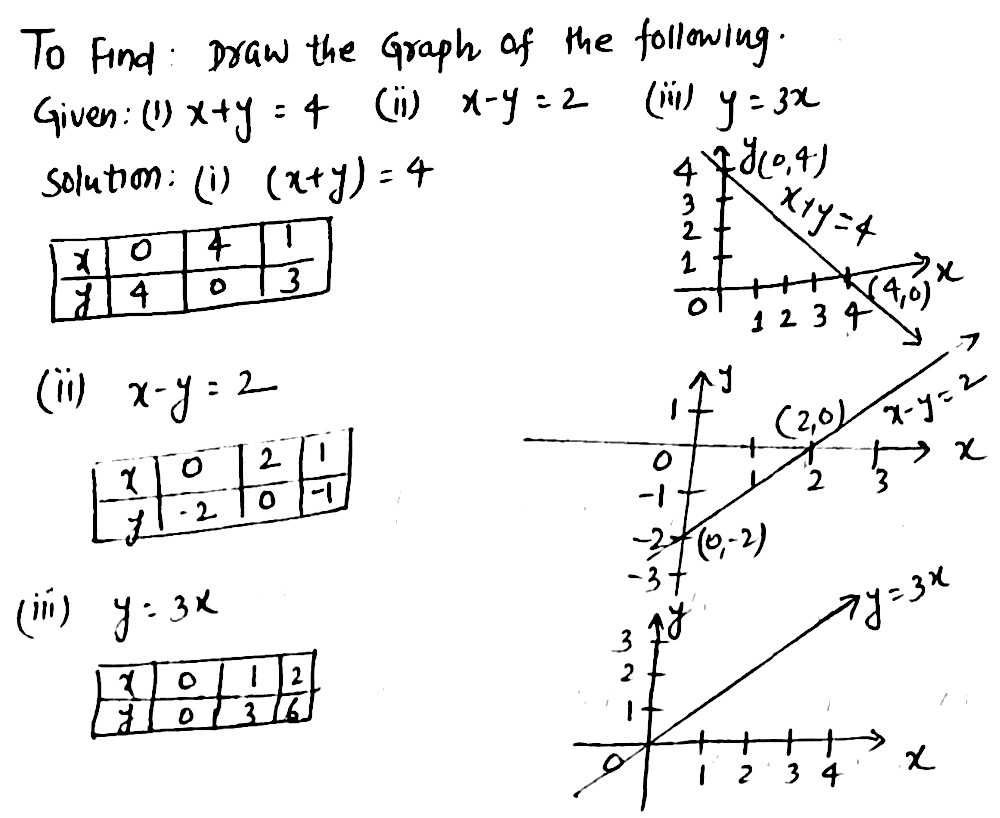 To Find: Draw the Graph of the following.
Given: (i) x+y = 4 (ii) x-y = 2 (iii) y = 3x
Solution: (i) (x+y) = 4
x 0 4 1
y 4 0 3
y (0,4)
4
3
2
1
0
1 2 3 4
x+y=4
(4,0)
x
(ii) x-y = 2
x 0 2 1
y -2 0 -1
y
1
0
-1
-2
-3
1 2 3
(2,0)
x-y=2
x
(0,-2)
(iii) y = 3x
x 0 1 2
y 0 3 6
y
3
2
1
0
1 2 3 4
y=3x
x